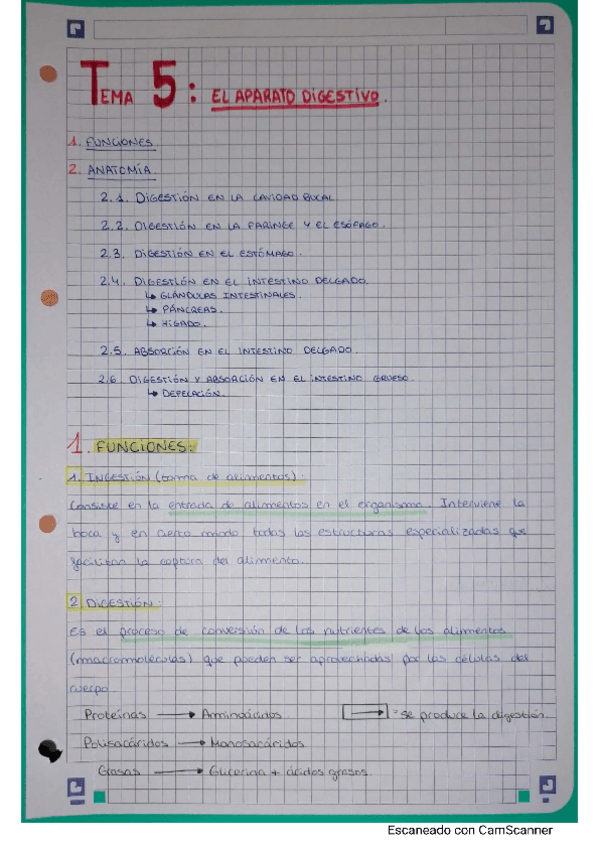 TEMA 5: EL APARATO DIGESTIVO.
1. FUNCIONES.
2. ANATOMÍA.
2.1. DIGESTIÓN EN LA CAVIDAD BUCAL
2.2. DIGESTIÓN EN LA FARINGE Y EL ESÓFAGO.
2.3. DIGESTIÓN EN EL ESTÓMAGO.
2.4. DIGESTIÓN EN EL INTESTINO DELGADO.
↳ GLÁNDULAS INTESTINALES.
↳ PÁNCREAS.
↳ HÍGADO.
2.5. ABSORCIÓN EN EL INTESTINO DELGADO.
2.6. DIGESTIÓN Y ABSORCIÓN EN EL INTESTINO GRUESO.
↳ DEFECACIÓN.
1. FUNCIONES:
1. INGESTIÓN (toma de alimentos).
Consiste en la entrada de alimentos en el organismo. Interviene la
boca y en cierto modo todas las estructuras especializadas que
facilitan la captura del alimento.
2 DIGESTIÓN:
Es el proceso de conversión de los nutrientes de los alimentos
(macromoléculas) que pueden ser aprovechadas por las células del
cuerpo.
Proteínas → Aminoácidos. → = se produce la digestión.
Polisacáridos → Monosacáridos
Grasas → Glicerina + ácidos grasos.
Escaneado con CamScanner